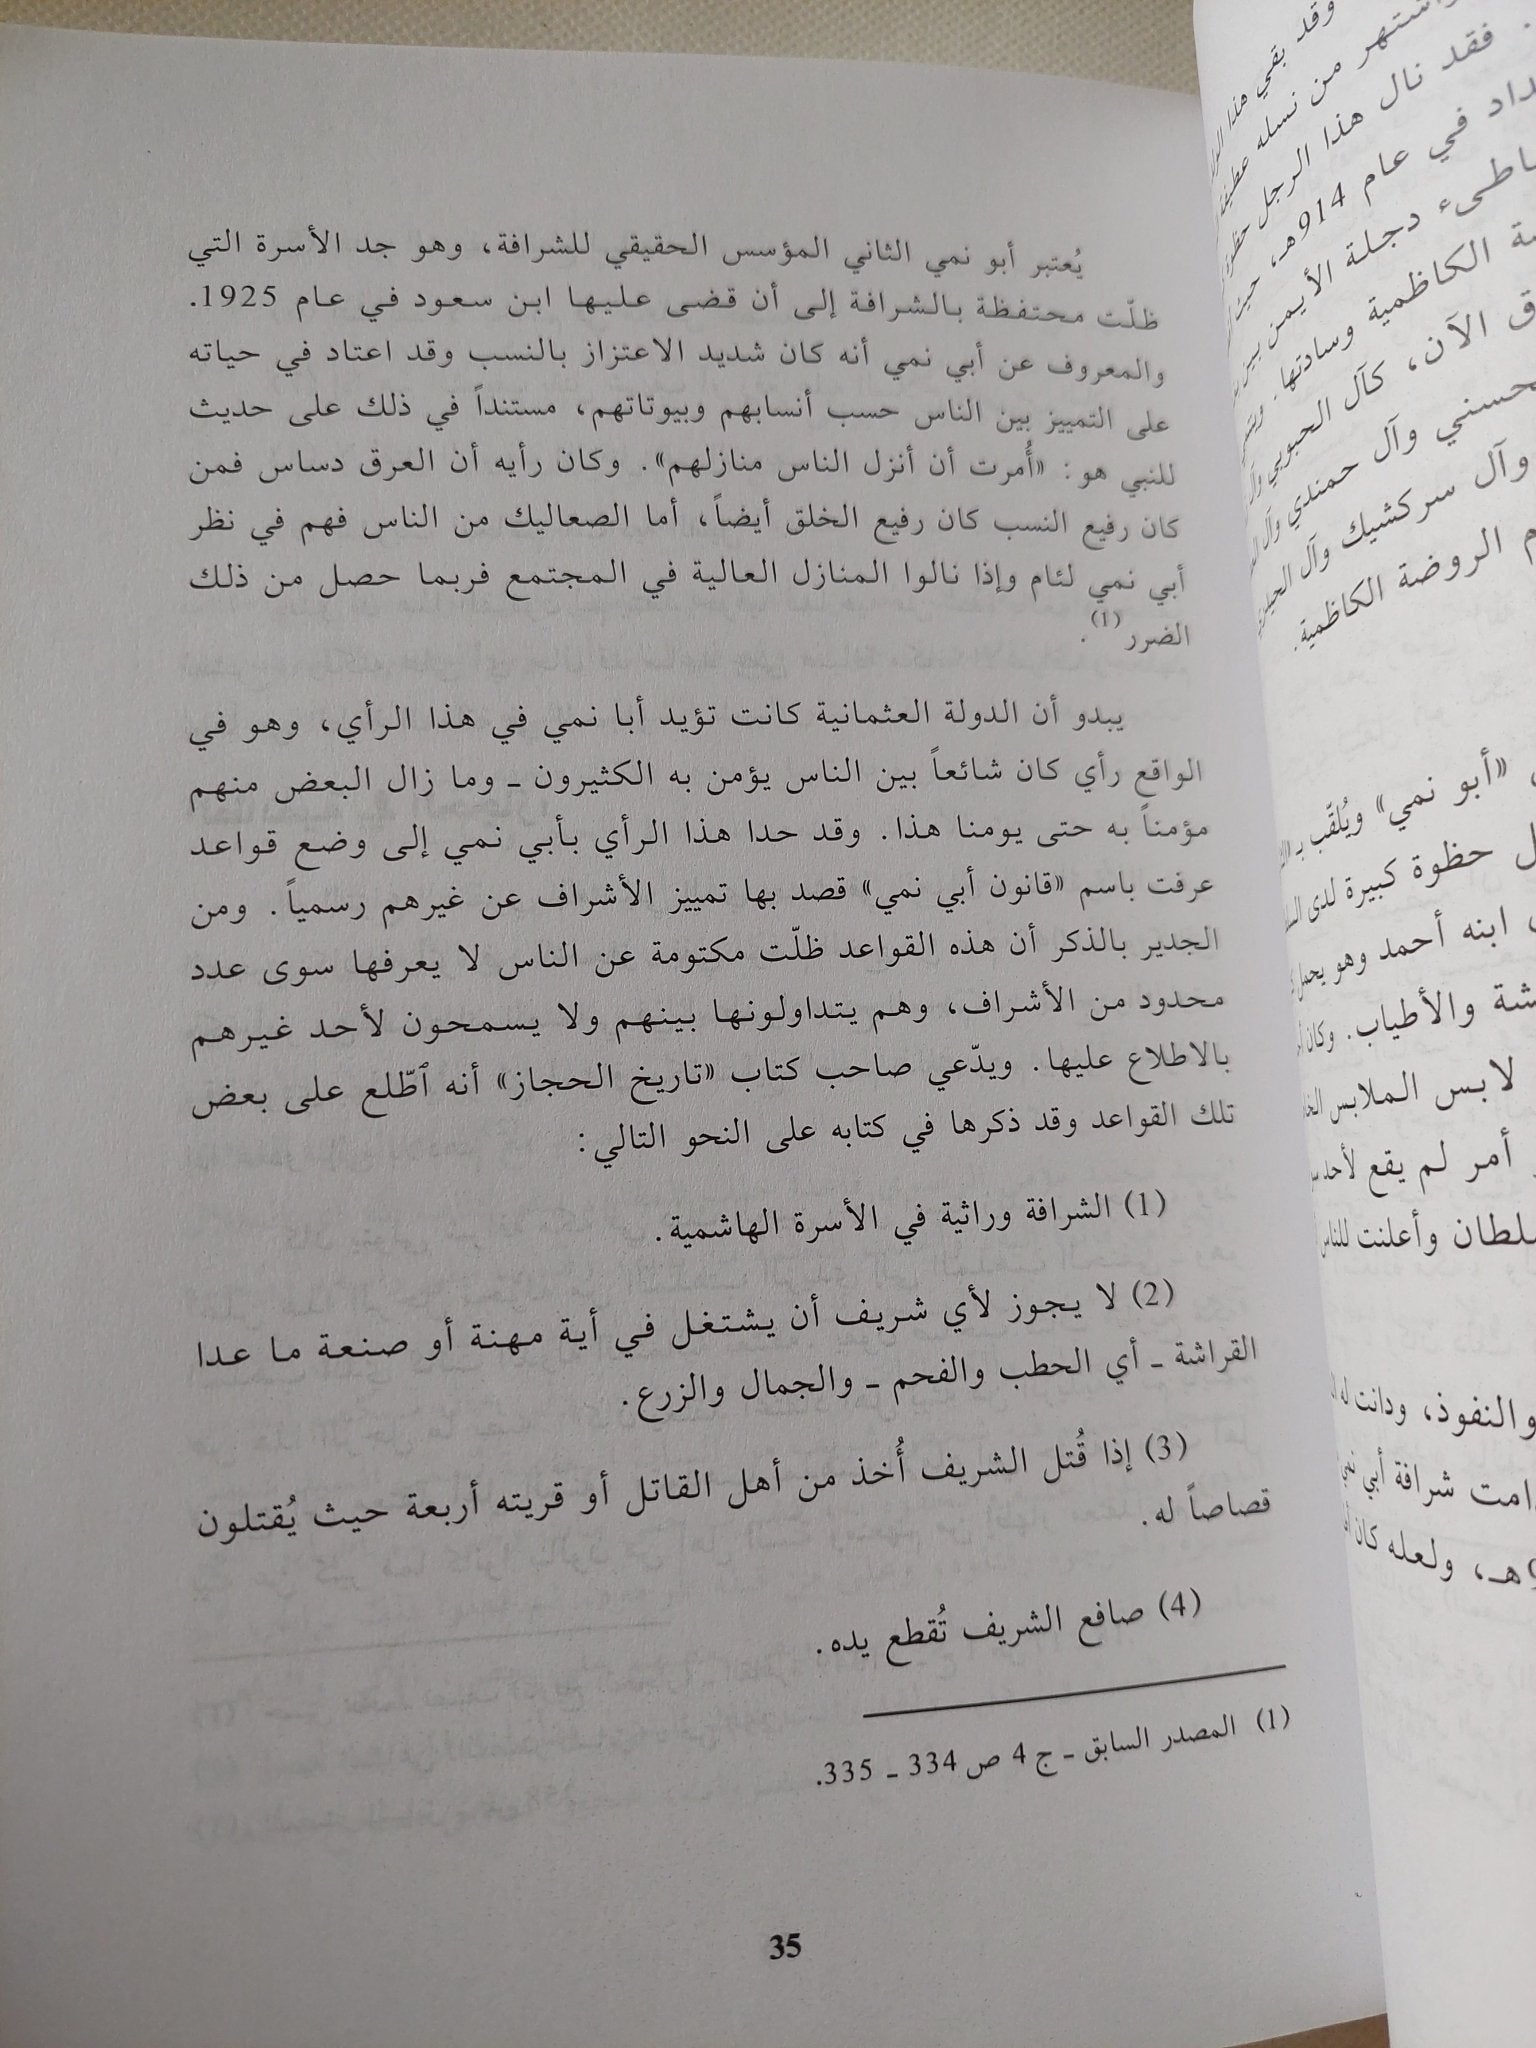 يُعتبر أبو نمي الثاني المؤسس الحقيقي للشرافة، وهو جد الأسرة التي
ظلّت محتفظة بالشرافة إلى أن قضى عليها ابن سعود في عام 1925.
والمعروف عن أبي نمي أنه كان شديد الاعتزاز بالنسب وقد اعتاد في حياته
على التمييز بين الناس حسب أنسابهم وبيوتاتهم، مستنداً في ذلك على حديث
للنبي هو: «أُمرت أن أنزل الناس منازلهم». وكان رأيه أن العرق دساس فمن
كان رفيع النسب كان رفيع الخلق أيضاً، أما الصعاليك من الناس فهم في نظر
أبي نمي لئام وإذا نالوا المنازل العالية في المجتمع فربما حصل من ذلك
الضرر(1).
يبدو أن الدولة العثمانية كانت تؤيد أبا نمي في هذا الرأي، وهو في
الواقع رأي كان شائعاً بين الناس يؤمن به الكثيرون ـ وما زال البعض منهم
مؤمناً به حتى يومنا هذا. وقد حدا هذا الرأي بأبي نمي إلى وضع قواعد
عرفت باسم «قانون أبي نمي» قصد بها تمييز الأشراف عن غيرهم رسمياً. ومن
الجدير بالذكر أن هذه القواعد ظلّت مكتومة عن الناس لا يعرفها سوى عدد
محدود من الأشراف، وهم يتداولونها بينهم ولا يسمحون لأحد غيرهم
بالاطلاع عليها. ويدّعي صاحب كتاب «تاريخ الحجاز» أنه ٱطّلع على بعض
تلك القواعد وقد ذكرها في كتابه على النحو التالي:
(1) الشرافة وراثية في الأسرة الهاشمية.
(2) لا يجوز لأي شريف أن يشتغل في أية مهنة أو صنعة ما عدا
القراشة ـ أي الحطب والفحم ـ والجمال والزرع.
(3) إذا قُتل الشريف أُخذ من أهل القاتل أو قريته أربعة حيث يُقتلون
قصاصاً له.
(4) صافع الشريف تُقطع يده.
(1) المصدر السابق ـ ج 4 ص 334 ـ 335.
35
وقد بقي هذا
من نسله
فقد نال هذا الرجل
في عام 914هـ، حيث
دجلة الأيمن بين
الكاظمية وسادتها.
الآن، كآل الحبوبي
وآل حمندي وآل
وآل سركشيك وآل
الروضة الكاظمية.
«أبو نمي» ويُلقّب بـ
حظوة كبيرة لدى
ابنه أحمد وهو يحمل
والأطياب. وكان
لابس الملابس
أمر لم يقع لأحد
وأعلنت للناس
والنفوذ، ودانت له
شرافة أبي نمي
هـ، ولعله كان